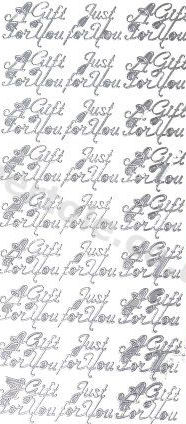 A Gift Just A Gift
For You for You For You
A Gift Just A Gift
For You for You For You
A Gift Just A Gift
For You for You For You
A Gift Just A Gift
For You for You For You
A Gift Just A Gift
For You for You For You
A Gift Just A Gift
For You for You For You
A Gift Just A Gift
For You for You For You
A Gift Just A Gift
For You for You For You
A Gift Just A Gift
For You for You For You